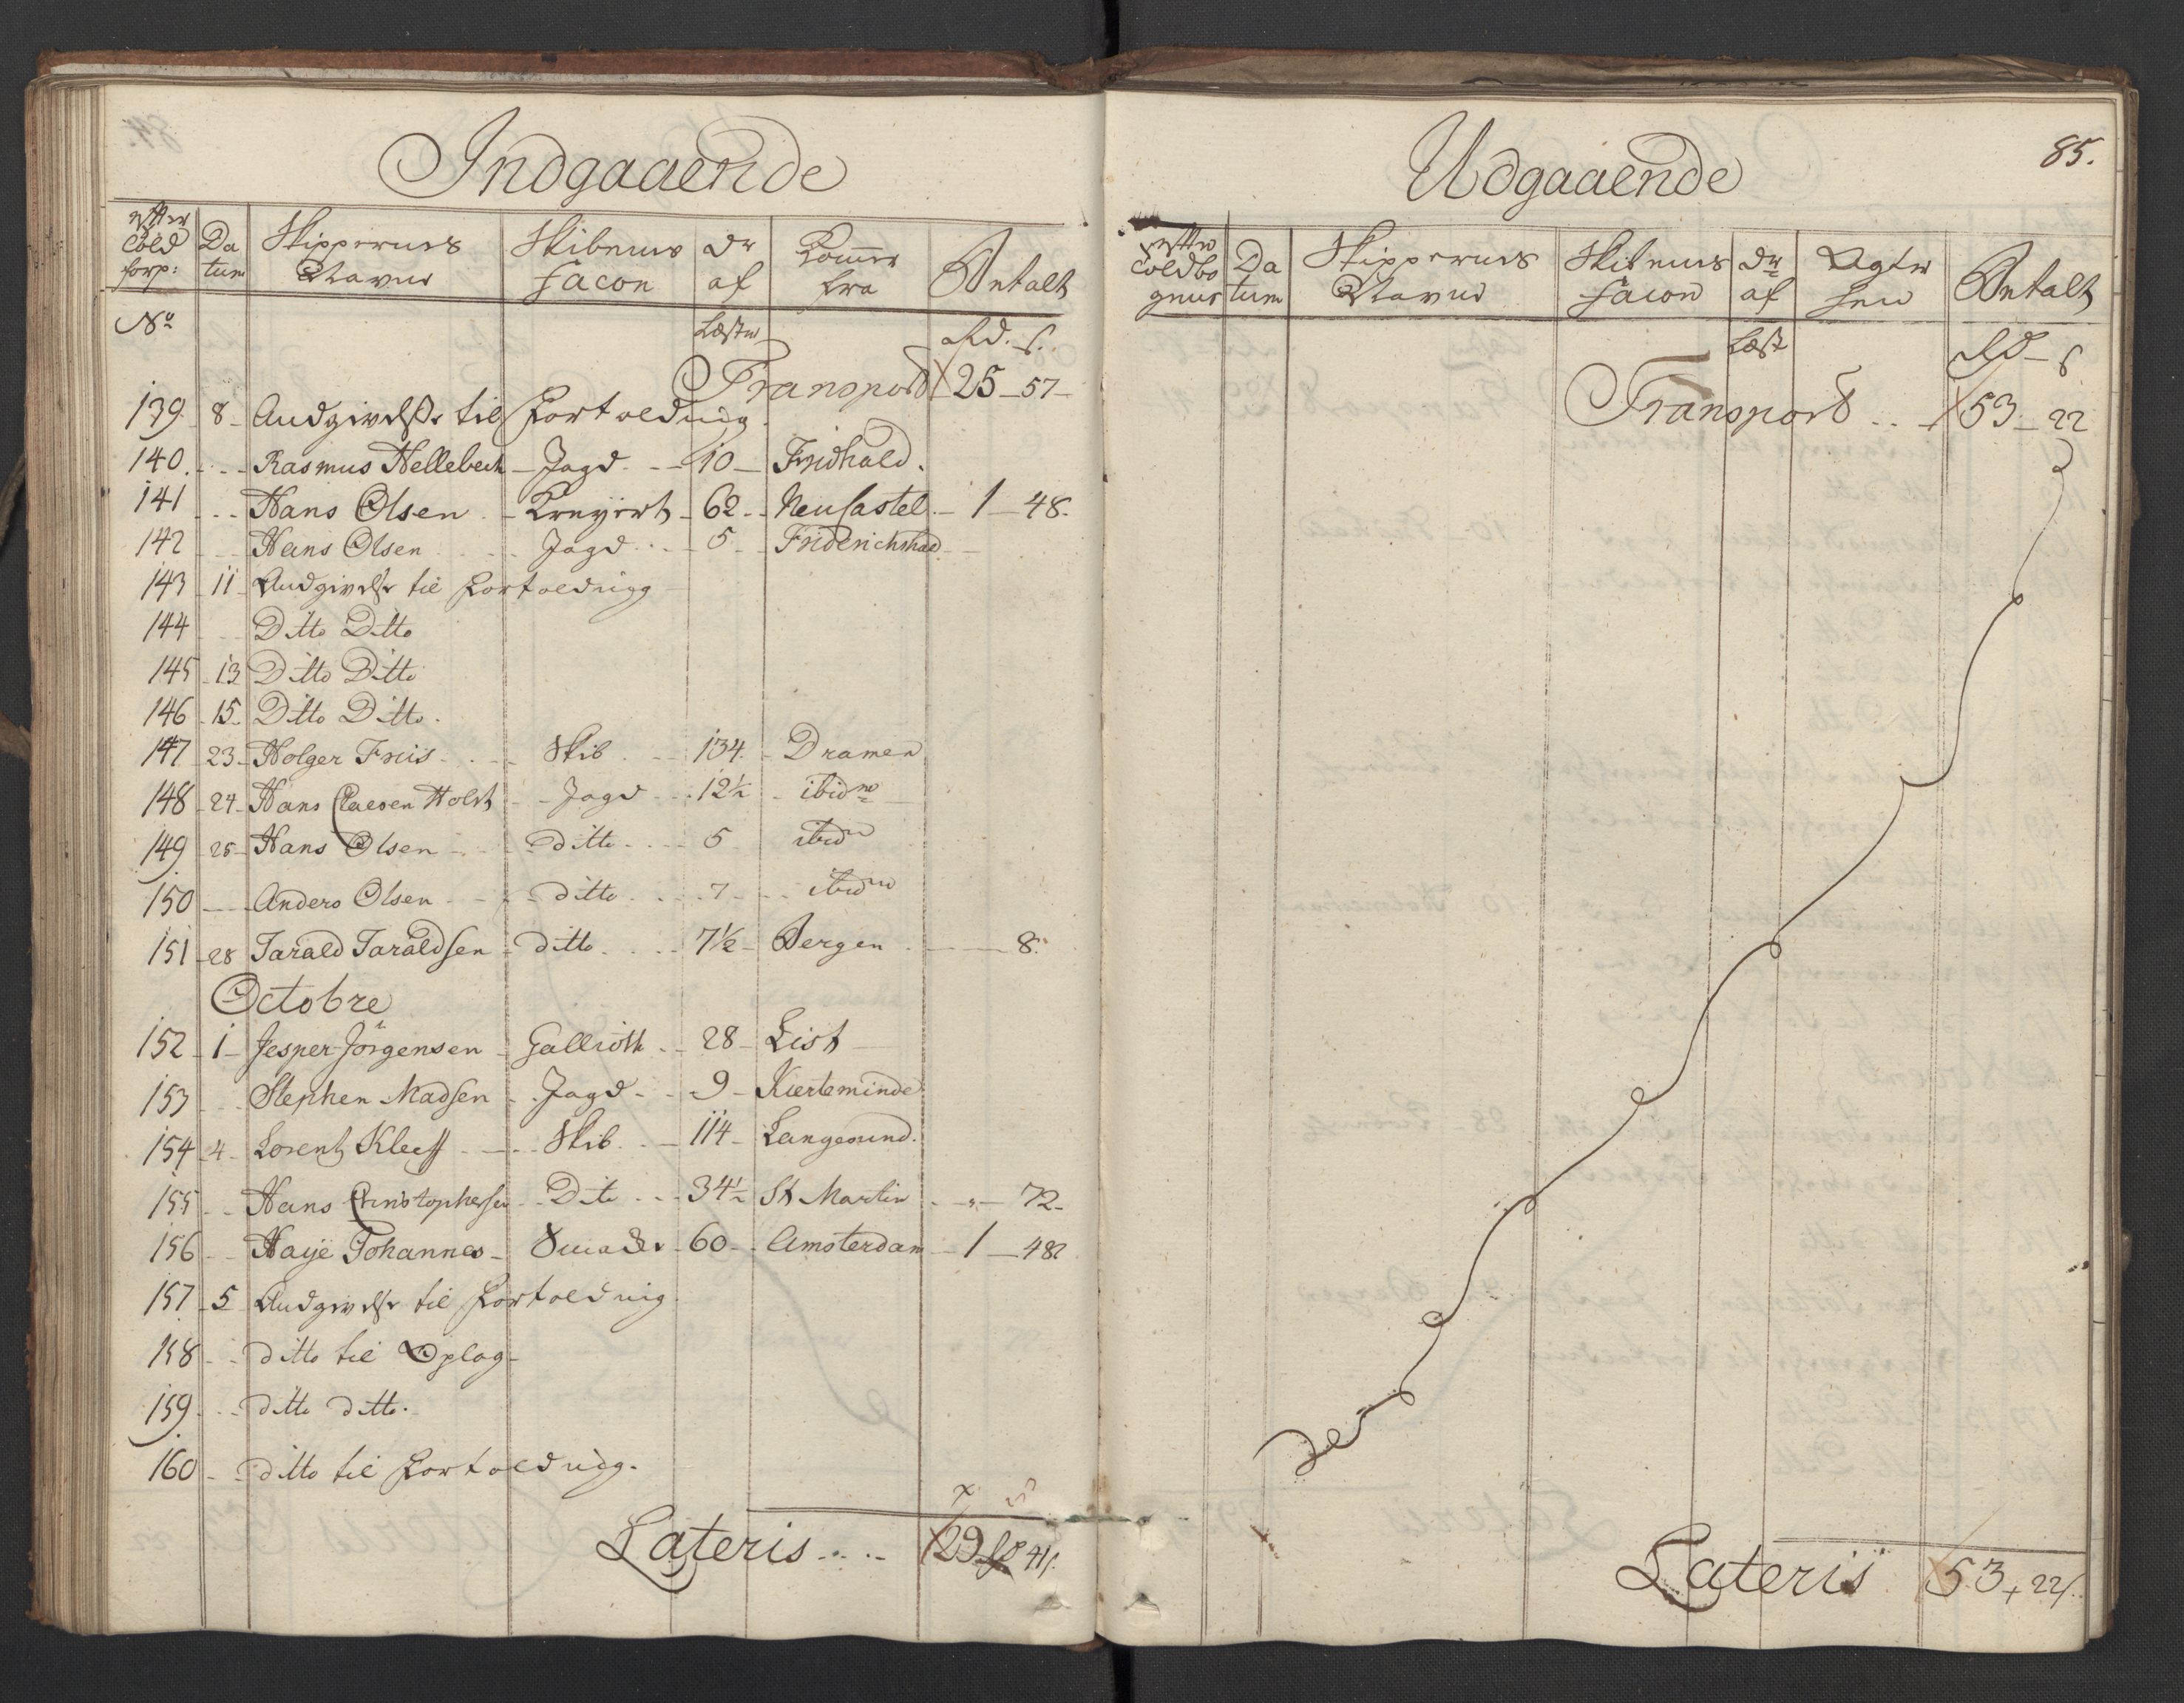 Indgaaende
efter Told forp: | Da tum | Skippernes Navne | Skibenes facon | Dr af | Kommer fra | Antalt
No | Læster | Rd. s.
Transport 25 - 57 -
139 - 8 - Andgivelse til Fortoldning.
140. - - Rasmus Hellebech - Jagd - 10 - Fridhald.
141 - - Hans Olsen - Kreyert - 62 - NeuCastel - 1 - 48.
142 - - Hans Olsen - Jagd - 5 - Friderichshald
143 - 11 - Andgivelse til Fortoldnigg
144 - Ditto Ditto
145 - 13 Ditto Ditto
146 - 15 - Ditto Ditto.
147 - 23 - Holger Friis - Skib - 134 - Dramen
148 - 24 - Hans Claesen Holst - Jagd - 12½ - ibidm
149 - 25 - Hans Olsen - ditto - 5 ibid
150 - Anders Olsen - ditto - 7 - ibidm
151 - 28 Tarald Taraldsen - ditto - 7½ - Bergen - 8.
Octobre
152 - 1 - Jesper Jörgensen - Gallioth - 28 - List
153 - Stephen Madsen - Jagd - 9 - Kierteminde
154 - 4 - Lorentz Kleeff - Skib - 114 - Langesund.
155 - Hans Christophersen - Dito - 34½ St Martin - " - 72 -
156 - Haye Johannes - Smacke - 60 - Amsterdam - 1 - 48
157 - 5 Andgivelse til Fortoldnig.
158 - ditto til Oplag -
159 - ditto ditto.
160 - ditto til Fortoldnig.
Lateris - 29 41s.
85.
Udgaaende
efter Toldbo gens | Da tum | Skippernes Navne | Skibenes facon | Dr af | Agter hen | Antalt
Læst | Rd - s
Transport - 53 - 22
Lateris 53 + 22s.